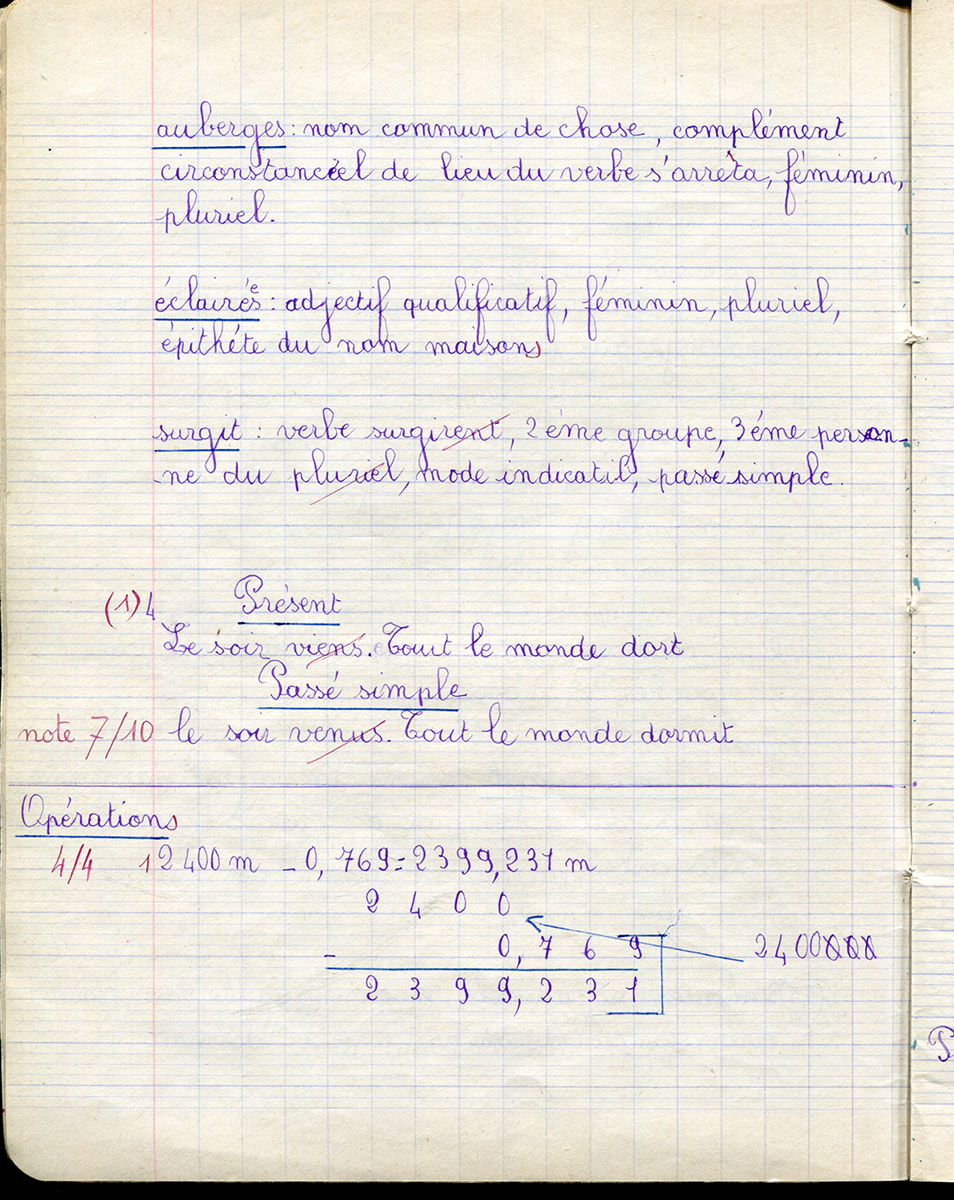 auberges : nom commun de chose, complément
circonstanciel de lieu du verbe s'arrêta, féminin,
pluriel.
éclairées : adjectif qualificatif, féminin, pluriel,
épithéte du nom maisons
surgit : verbe surgirent, 2ème groupe, 3éme person-
-ne du pluriel, mode indicatif, passé simple.
(1) 4 Présent
Le soir viens. Tout le monde dort
Passé simple
note 7/10 le soir venus. Tout le monde dormit
Opérations
4/4 1 2400 m - 0,769 = 2399,231 m
2 4 0 0
- 0,7 6 9 2400XXX
2 3 9 9,2 3 1
P